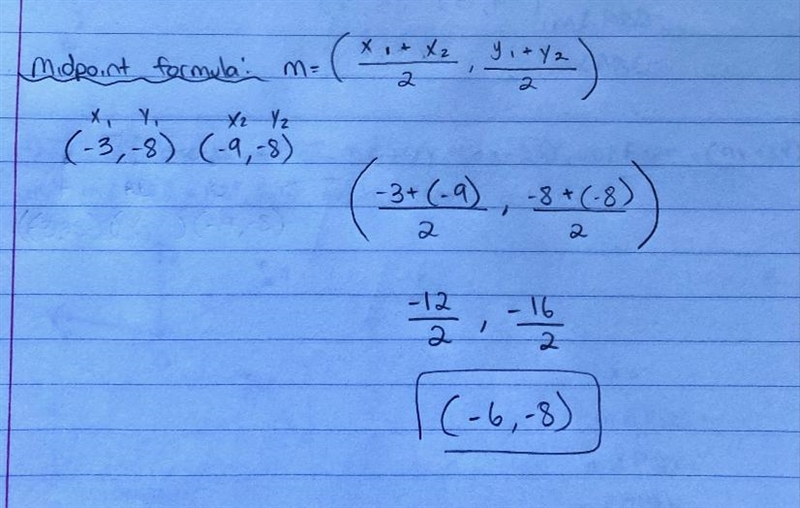 Midpoint formula: m = ( x₁ + x₂ / 2 , y₁ + y₂ / 2 )
x₁ y₁ x₂ y₂
(-3, -8) (-9, -8)
( -3 + (-9) / 2 , -8 + (-8) / 2 )
-12 / 2 , -16 / 2
(-6, -8)